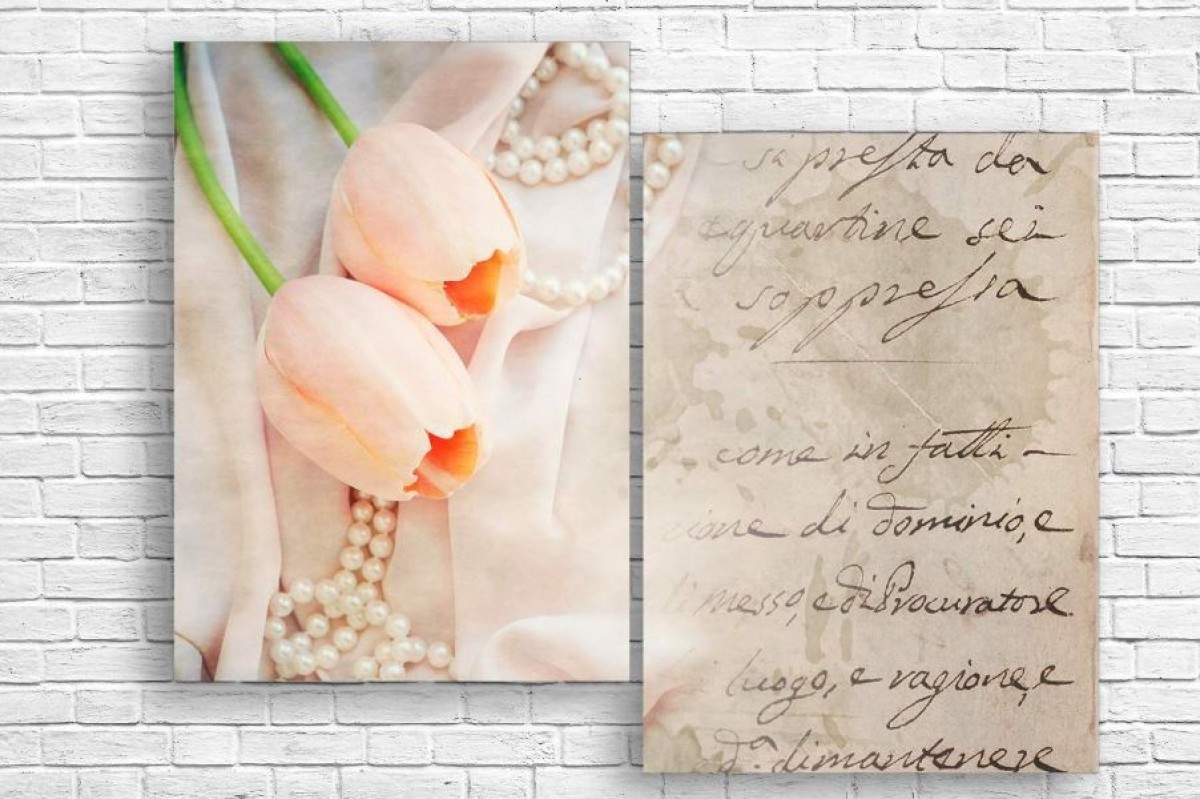 sia presta da
quartine sei
soppressa
come in fatti -
zione di dominio, e
messo, e di Procuratore
luogo, e ragione, e
dimantenere